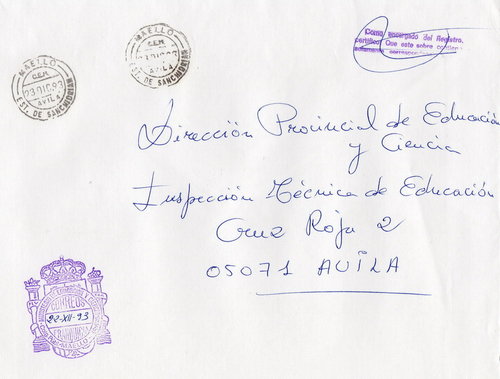 MAELLO
C.E.M
23 DIC. 93
AVILA
EST. DE SANCHIDRIAN
MAELLO
C.E.M
DIC. 93
AVILA
EST. DE SANCHIDRIAN
Como encargado del Registro,
certifico: Que este sobre contiene
solamente correspon
Dirección Provincial de Educación
y Ciencia
Inspección Técnica de Educación
Cruz Roja 2
05071 AVILA
CORREOS
22-XII-93
FRANQUICIA